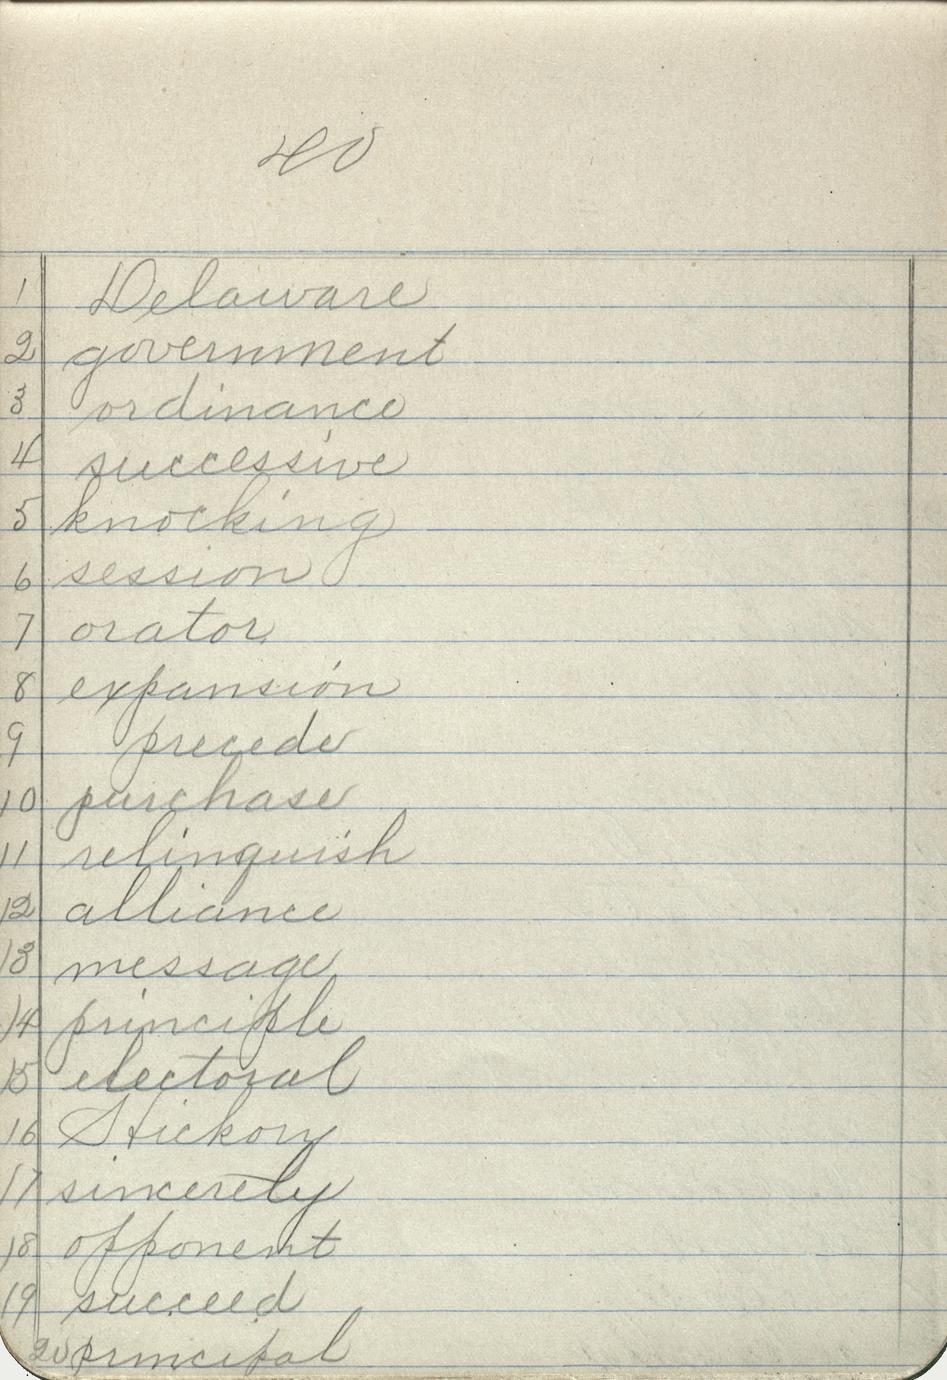 40
1 Delaware
2 government
3 ordinance
4 successive
5 knocking
6 session
7 orator
8 expansion
9 precede
10 purchase
11 relinquish
12 alliance
13 message
14 principle
15 electoral
16 Hickory
17 sincerely
18 opponent
19 succeed
20 principal